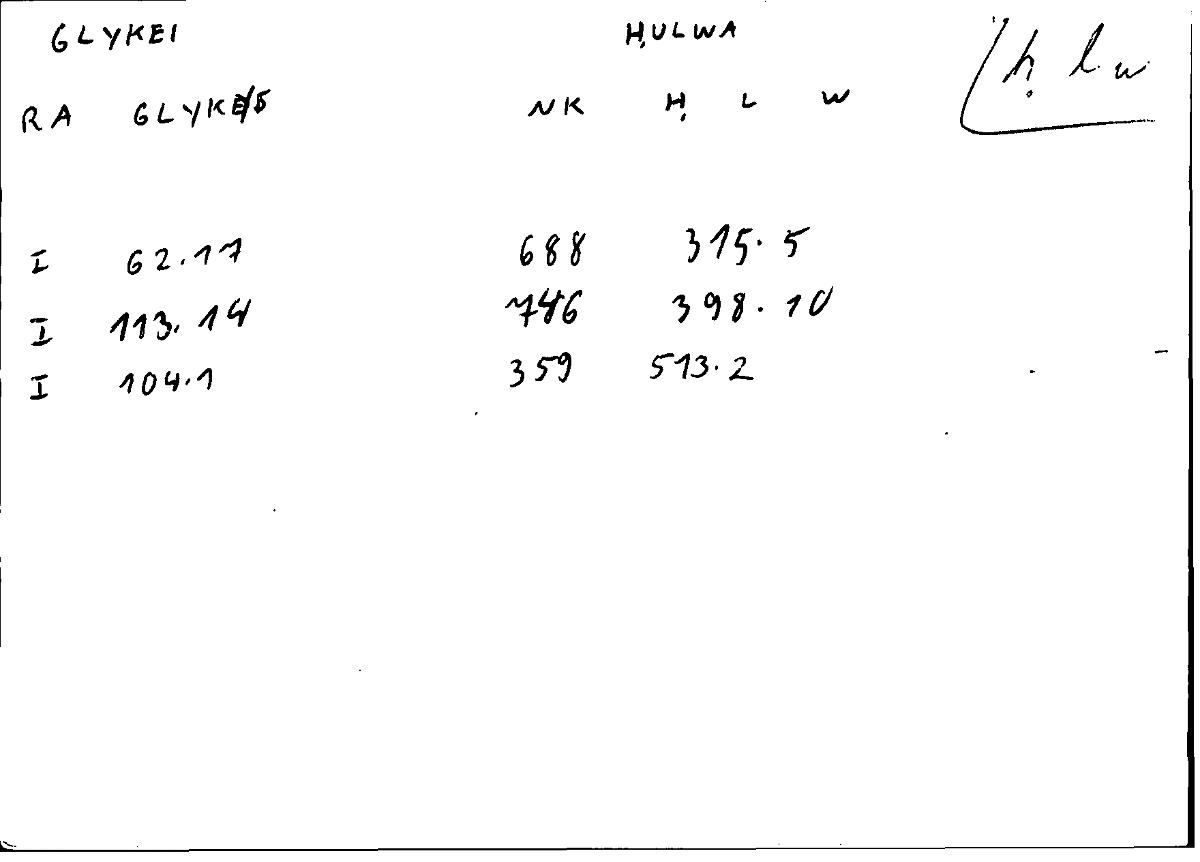 GLYKEI ḤULWA
ḥ l w
RA GLYKE/5 NK Ḥ L W
I 62.17 688 315.5
I 113.14 746 398.10
I 104.1 359 513.2